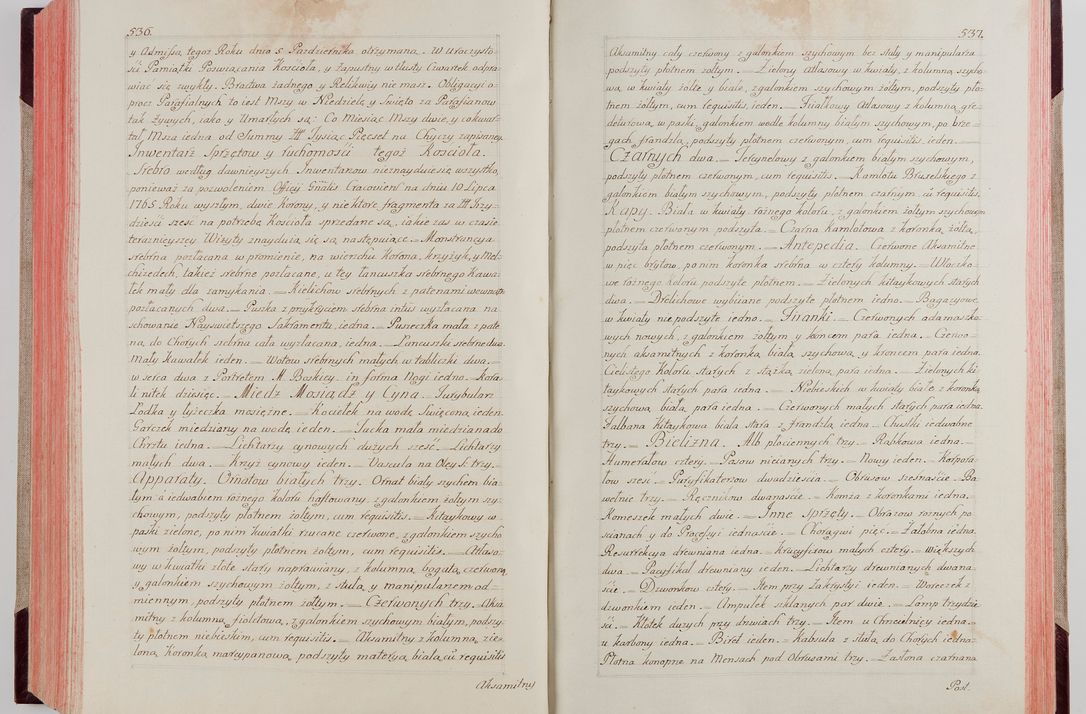 536.
y Admissa tegoż Roku dnia 5. Pazdziernika otrzymana. W Uroczysto-
ści Pamiątki Poswiącania Kościoła, y Zapustny w tłusty Czwartek odpra-
wiac się zwykły. Bractwa żadnego y Relikwiy nie masz. Obligacyi o-
procz Parafialnych to iest Mszy w Niedziele y Swięto za Parafianow
tak żywych, iako y Umarłych są: Co Miesiąc Mszy dwie, y co kwar-
tał Msza iedna od Summy Tysiąc Pięcset na Chyczy zapisaney
Inwentarz Sprzętow y ruchomości tegoż Kościoła.
Srebro według dawnieyszych Inwentarzow nieznayduie się wszystko,
ponieważ za pozwoleniem Officij Gnalis Cracovien na dniu 10 Lipca
1765. Roku wyszłym, dwie korony, y niektore fragmenta za Trzy-
dzieści szesc na potrzebę Kościoła sprzedane są, iakie zas w czasie
teraznieyszey Wizyty znayduią się są następuiące. Monstrancya
srebrna pozłacana w promienie, na wierzchu korona, krzyżyk, y Mel-
chizedech, także srebrne pozłacane, u tey łancuszka srebrnego Kawa-
łek mały dla zamykania. Kielichow srebrnych z patenami wewnątrz
pozłacanych dwa. Puszka z przykryciem srebrna intus wyzłacana na
schowanie Nayswiętszego Sakramentu, iedna. Puszeczka mała z pate-
ną, do Chorych srebrna cała wyzłacana, iedna. Łancuszki srebrne dwa.
Mały kawałek ieden. Wotow srebrnych małych w tabliczki dwa.
w serca dwa z Portretem M. Boskiey. in forma Nogi iedno. Kora-
li nitek dziesięc. Miedz Mosiądz y Cyna. Turybularz
Łodka y łyżeczka mosiężne. Kociełek na wodę Swięconą ieden
Garczek miedziany na wodę ieden. Tacka mała miedziana do
Chrztu iedna. Lichtarzy cynowych dużych sześć. Lichtarzy
małych dwa. Krzyż cynowy ieden. Vascula na Oley S. trzy.
Apparaty. Ornatow białych trzy. Ornat biały szychem bia-
łym a iedwabiem rożnego koloru haftowany, z galonkiem żołtym szy-
chowym, podszyty płotnem żołtym, cum requisitis. Kitaykowy w
paski zielone, po nim kwiatki rzucane czerwone, z galonkiem szycho-
wym żołtym, podszyty płotnem żołtym, cum requisitis. Atłaso-
wy w kwiatki złote stary naprawiany, z kolumną bogatą czerwoną
y galonkiem szychowym żołtym, z stułą y manipularzem od-
miennym, podszyty płotnem żołtym. Czerwonych trzy. Aksa-
mitny z kolumną fioletową, z galonkiem szychowym białym, podszy-
ty płotnem niebieskim, cum requisitis. Aksamitny z kolumną zie-
loną Koronką marcypanową podszyty materyą białą, cu requisitis
Aksamitny
537.
Aksamitny cały czerwony z galonkiem szychowym bez stuły y manipularza
podszyty płotnem żołtym. Zielony Atłasowy w kwiaty, z kolumną szycho-
wą, w kwiaty żołte y białe, z galonkiem szychowym żołtym, podszyty płó-
tnem żołtym, cum requisitis, ieden. Fiałkowy Atłasowy z kolumną gre-
deturową, w paski, galonkiem wedle kolumny białym szychowym, po brze-
gach frandzlą, podszyty płotnem czerwonym, cum requisitis, ieden.
Czarnych dwa. Tercynelowy z galonkiem białym szychowym,
podszyty płotnem czerwonym, cum requisitis. Kamlotu Bruselskiego z
galonkiem białym szychowym, podszyty płotnem czarnym, cu requisitis.
Kapy. Biała w kwiaty rożnego koloru, z galonkiem żołtym szychowym
płotnem czerwonym podszyta. Czarna Kamlotowa z koronką żołtą,
podszyta płotnem czerwonym. Antepedia. Czerwone Aksamitne
w pięc brytow, po nim koronka srebrna w cztery kolumny. Włoczko-
we rożnego koloru podszyte płotnem. Zielonych kitaykowych starych
dwa. Drelichowe wybiiane podszyte płotnem iedno. Bagazyowe
w kwiaty nie podszyte iedno. Firanki. Czerwonych adamaszko-
wych nowych, z galonkiem żołtym y koncem para iedna. Czerwo-
nych aksamitnych z koronką białą szychową, y kroncem para iedna.
Cielistego Koloru starych z stążką zieloną para iedna. Zielonych ki-
taykowych starych para iedna. Niebieskich w kwiaty białe z koronką
szychową białą, para iedna. Czerwonych małych starych para iedna.
Falbana kitaykowa biała stara z frandzlą iedna. Chustki iedwabne
trzy. Bielizna. Alb płociennych trzy. Rabkowa iedna.
Humerałow cztery. Pasow nicianych trzy. Nowy ieden. Korpora-
łow szesc. Puryfikaterzow dwudzieścia. Obrusow szesnaście. Ba-
wełnic trzy. Ręcznikow dwanaście. Komża z koronkami iedna.
Komeszek małych dwie. Inne sprzęty. Obrazow rożnych po
scianach y do Processyi iednaście. Chorągwi pięć. Załobna iedna.
Resurrekcya drewniana iedna. Krucyfixow małych cztery. większych
dwa. Pacyfikał drewniany ieden. Lichtarzy drewnianych dwana-
ście. Dzwonkow cztery. Item przy Zakrystyi ieden. Woreczek z
dzwonkiem ieden. Ampułek szklanych par dwie. Lamp trzydzie-
ści. Kłotek dużych przy drzwiach trzy. Item u Chrzcielnicy iedna.
u karbony iedna. Biret ieden. Kabzula z stułą do Chorych iedna.
Płotna konopne na Mensach pod Obrusami trzy. Zasłona czarnana
Post.